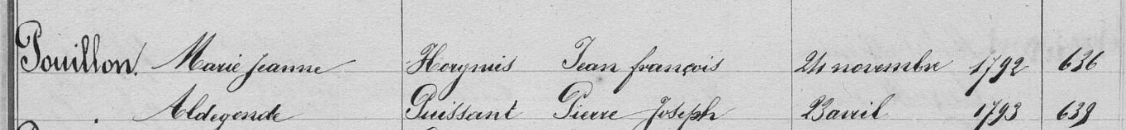 Pouillon. Marie Jeanne Herymis Jean françois 24 novembre 1792 636
. Aldegonde Puissant Pierre Joseph avril 1793 639